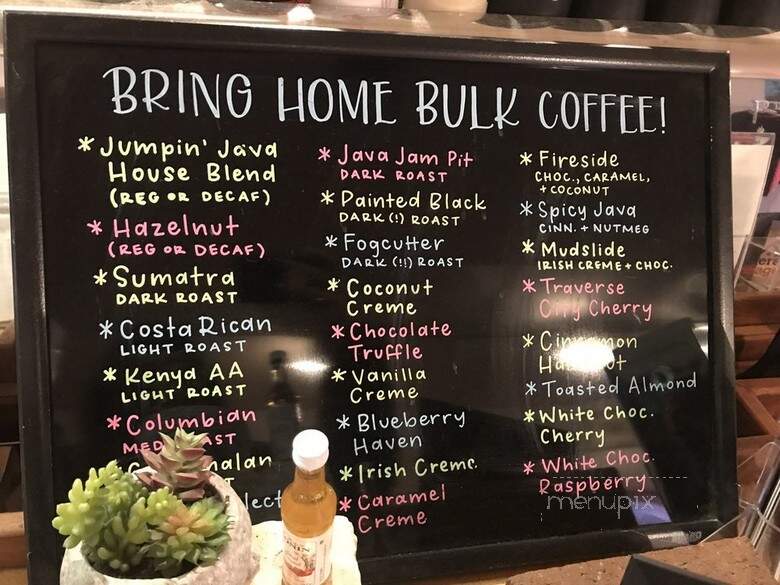 BRING HOME BULK COFFEE!
* Jumpin' Java
House Blend
(REG OR DECAF)
* Hazelnut
(REG OR DECAF)
* Sumatra
DARK ROAST
* Costa Rican
LIGHT ROAST
* Kenya AA
LIGHT ROAST
* Columbian
* Java Jam Pit
DARK ROAST
* Painted Black
DARK (!) ROAST
* Fogcutter
DARK (!!) ROAST
* Coconut
Creme
* Chocolate
Truffle
* Vanilla
Creme
* Blueberry
Haven
* Irish Creme
* Caramel
Creme
* Fireside
CHOC., CARAMEL,
+ COCONUT
* Spicy Java
CINN. + NUTMEG
* Mudslide
IRISH CREME + CHOC.
* Traverse
City Cherry
* Cinnamon
Hazelnut
* Toasted Almond
* White Choc.
Cherry
* White Choc.
Raspberry
menupix